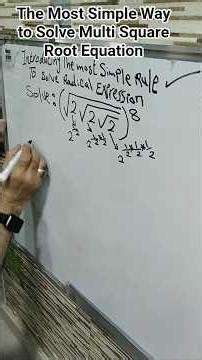 The Most Simple Way
to Solve Multi Square
Root Equation
Introducing The most Simple Rule
To Solve Radical Expression
Solve: (√2√2√2)^8
2^1/2 2^1/2*1/2 2^1/2*1/2*1/2